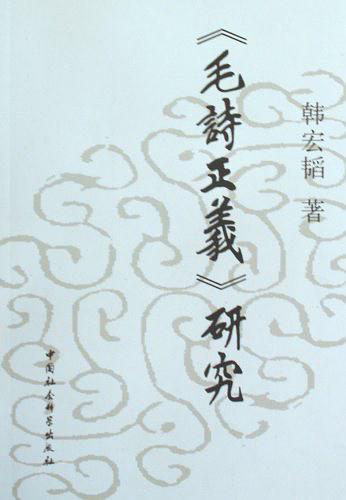 《毛詩正義》研究
韩宏韬 著
中国社会科学出版社